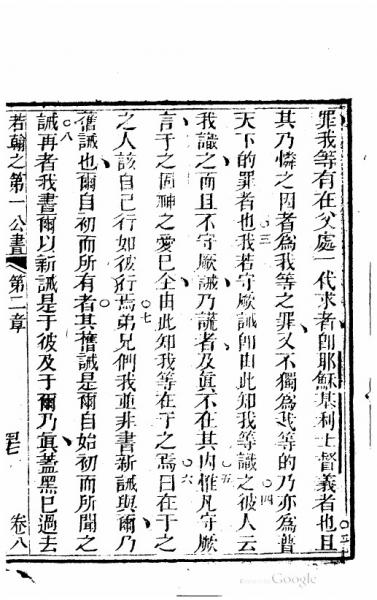 罪我等有在父處一代求者卽耶穌基利士督義者也且
其乃憐之因者爲我等之罪又不獨爲我等的乃亦爲普
天下的罪者也我若守厥誡卽由此知我等識之彼人云
我識之而且不守厥誡乃謊者及眞不在其内惟凡守厥
言于之固神之愛已全由此知我等在于之焉曰在于之
之人該自己行如彼行焉弟兄們我並非書新誡與爾乃
舊誡也爾自初而所有者其舊誡是爾自始初而所聞之
誡再者我書爾以新誡是于彼及于爾乃眞蓋黑已過去
若翰之第一公書 第二章 卷八
二
三
四
五
六
七
八
Google